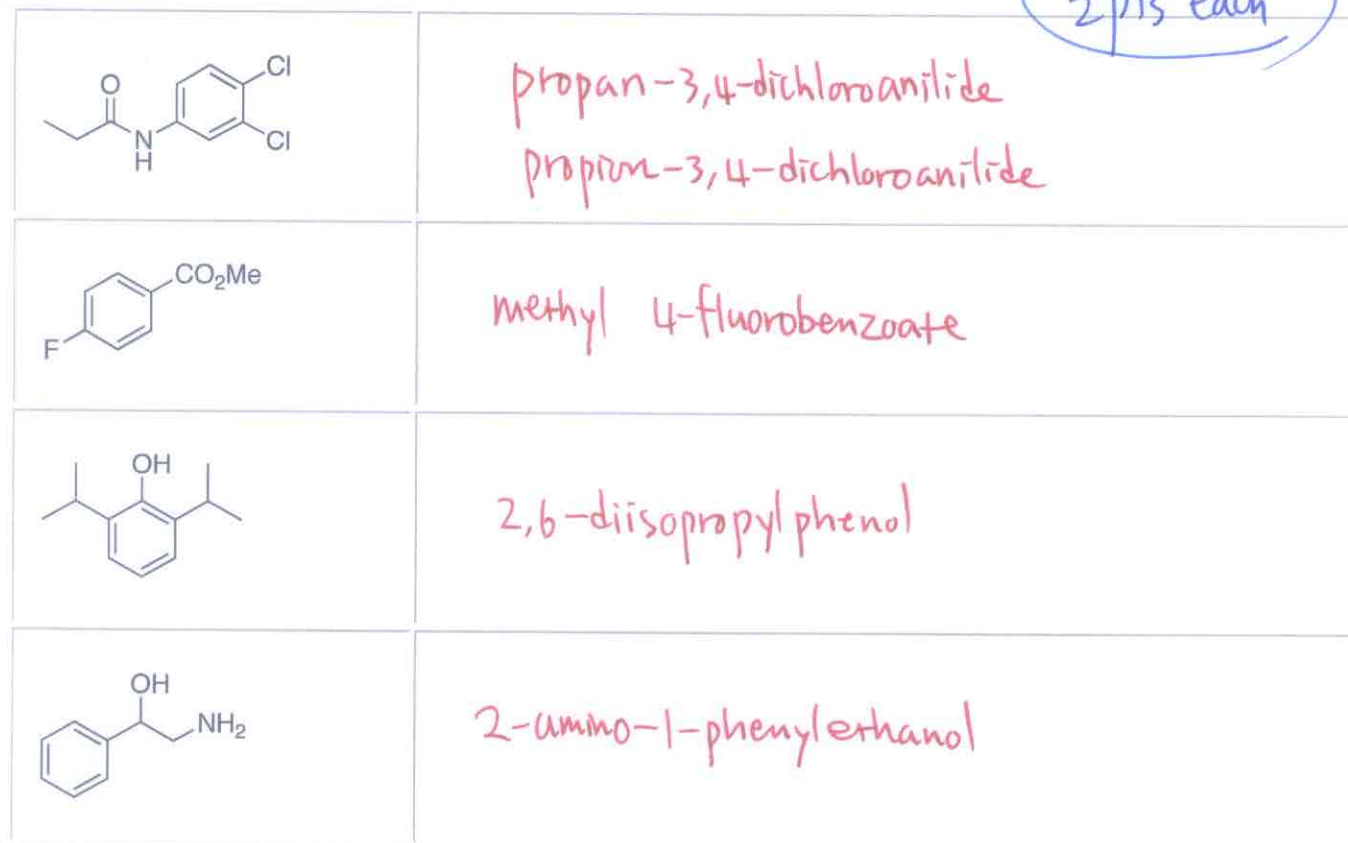 2 pts each
O
Cl
Cl
N
H
propan-3,4-dichloroanilide
propion-3,4-dichloroanilide
CO₂Me
F
methyl 4-fluorobenzoate
OH
2,6-diisopropylphenol
OH
NH₂
2-amino-1-phenylethanol